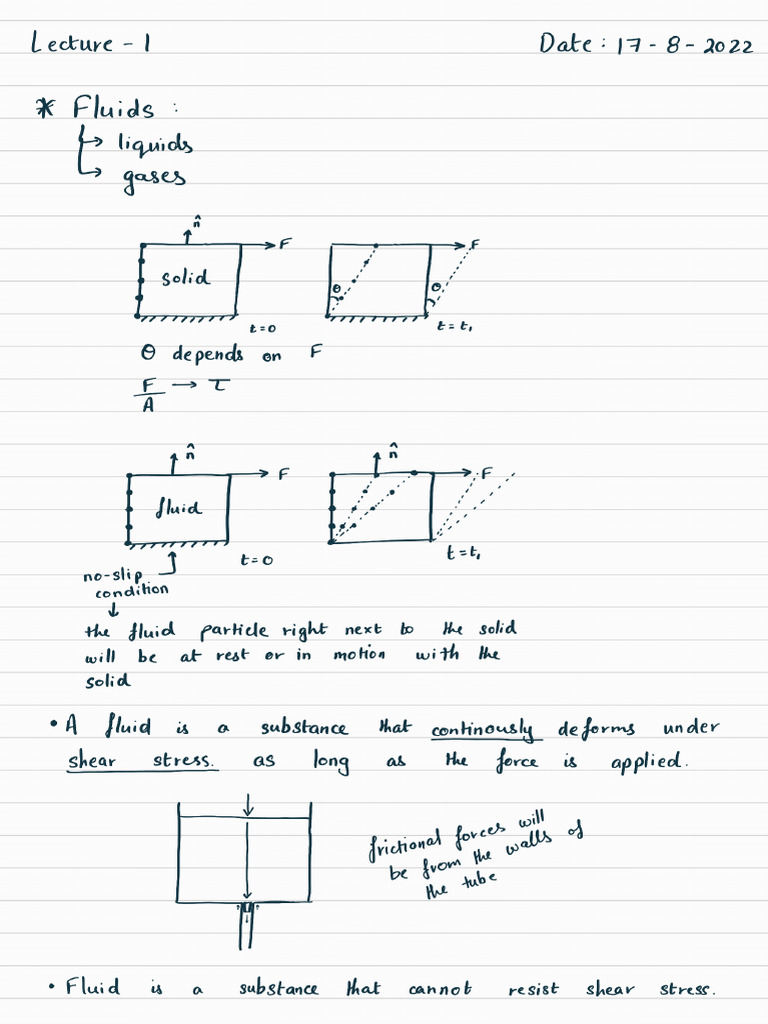 Lecture - 1
Date : 17 - 8 - 2022
* Fluids :
↳ liquids
↳ gases
n̂
F
solid
t=0
θ
θ
F
t = t₁
θ depends on F
F/A → τ
n̂
F
fluid
t=0
n̂
F
t = t₁
no-slip
condition
↓
the fluid particle right next to the solid
will be at rest or in motion with the
solid
• A fluid is a substance that continously deforms under
shear stress. as long as the force is applied.
frictional forces will
be from the walls of
the tube
• Fluid is a substance that cannot resist shear stress.